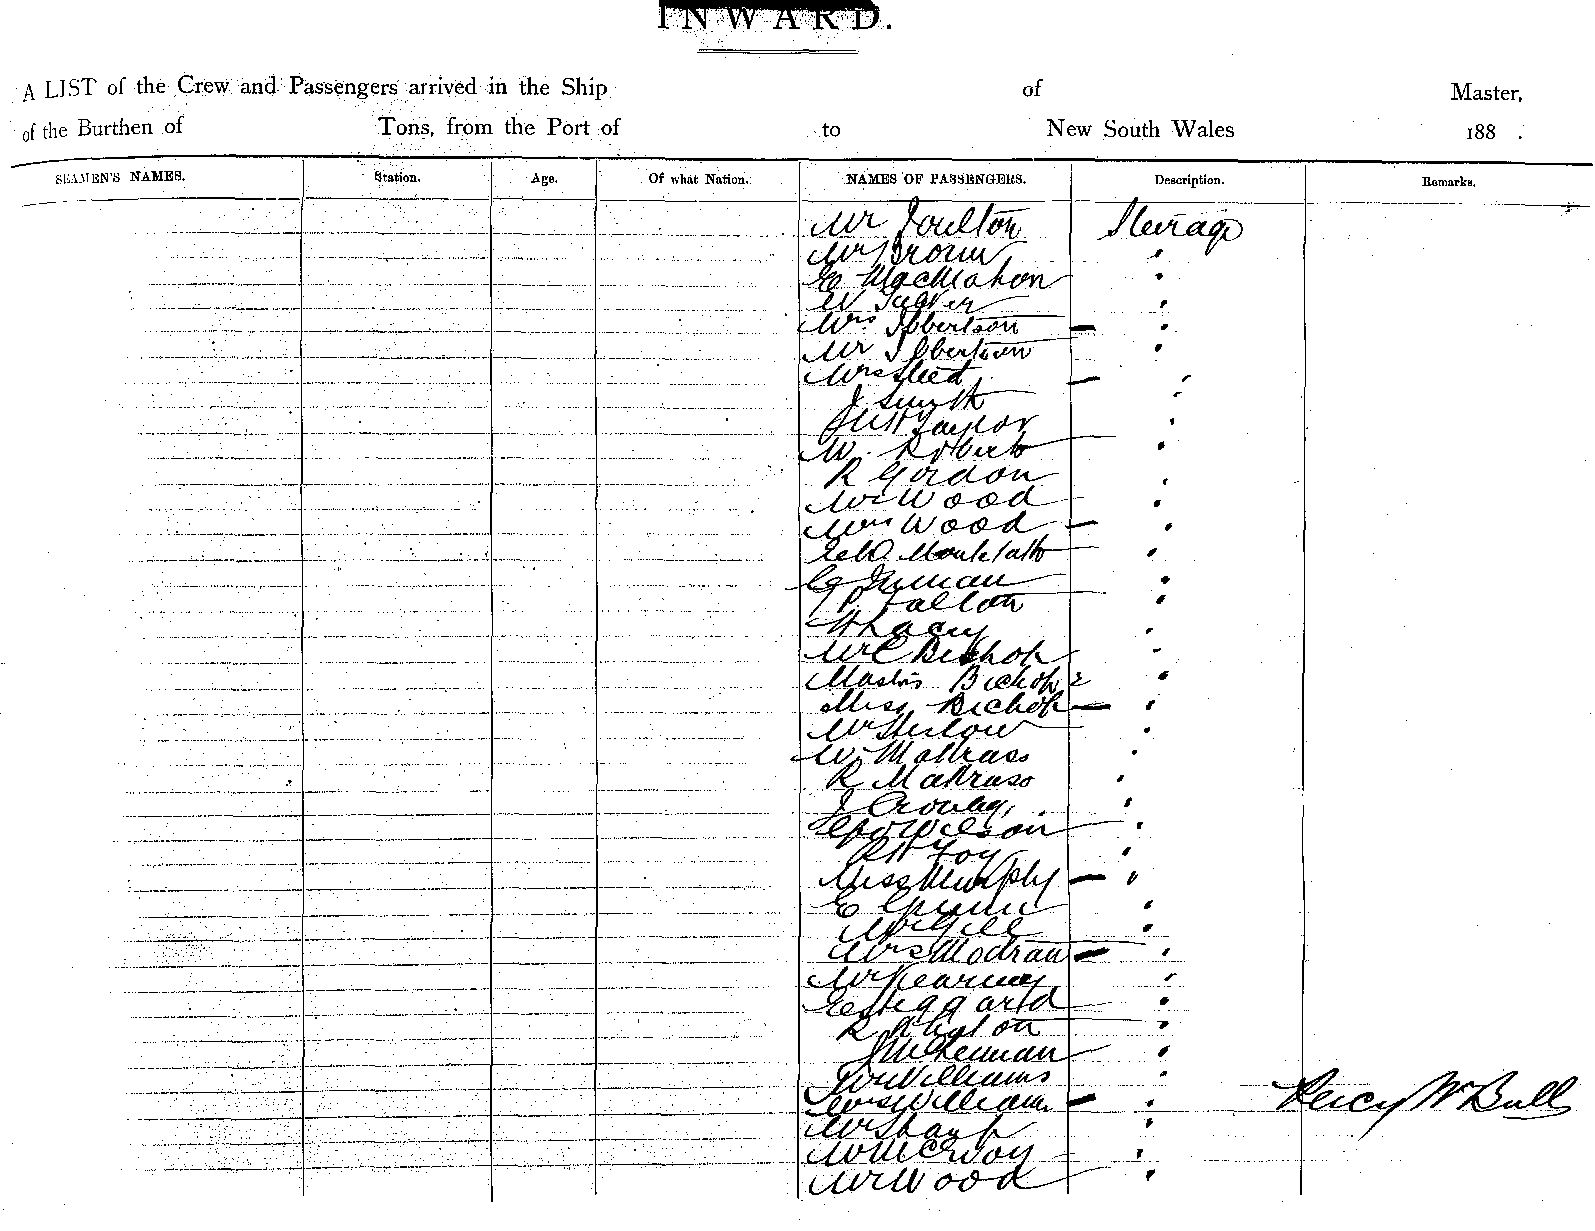 INWARD.
A LIST of the Crew and Passengers arrived in the Ship of Master,
of the Burthen of Tons, from the Port of to New South Wales 188 .
SEAMEN'S NAMES. Station. Age. Of what Nation. NAMES OF PASSENGERS. Description. Remarks.
Mr Steerage
Mr Brown "
E MacMahon "
W "
Mrs Ibbertson "
Mr Ibbertson "
Mrs Steed "
J Smyth "
Taylor "
W. Roberts "
R Gordon "
Mr Wood "
Mrs Wood "
"
Inman "
P. Fallon "
Lacey "
Mr C Bishop "
Masters Bishop 2 "
Miss Bishop "
Mr "
W Mattrass "
R Mattrass "
J "
Geo Wilson "
Foy "
Miss Murphy "
E "
Mr Gill "
Mrs Modran "
Mr Kearney "
"
R "
"
Mr Williams "
Mrs Williams " Percy W Bull
Mr Sharp "
Mr McEvoy "
Mr Wood "